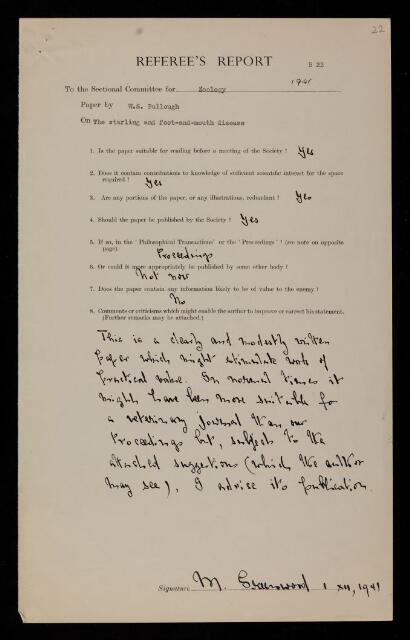 22
REFEREE'S REPORT
B 22
1941
To the Sectional Committee for Zoology
Paper by W.S. Bullough
On The starling and foot-and-mouth disease
1. Is the paper suitable for reading before a meeting of the Society ? Yes
2. Does it contain contributions to knowledge of sufficient scientific interest for the space
required ? Yes
3. Are any portions of the paper, or any illustrations, redundant ? Yes
4. Should the paper be published by the Society ? Yes
5. If so, in the ' Philosophical Transactions' or the ' Proceedings' ? (see note on opposite
page). Proceedings
6. Or could it more appropriately be published by some other body ?
Not now
7. Does the paper contain any information likely to be of value to the enemy ?
No
8. Comments or criticisms which might enable the author to improve or correct his statement.
(Further remarks may be attached.)
This is a clearly and modestly written
paper which might stimulate work of
practical value. In normal times it
might have been more suitable for
a veterinary journal than our
Proceedings but, subject to the
attached suggestions (which the author
may see), I advise its publication.
Signature M. Greenwood 1 XII, 1941